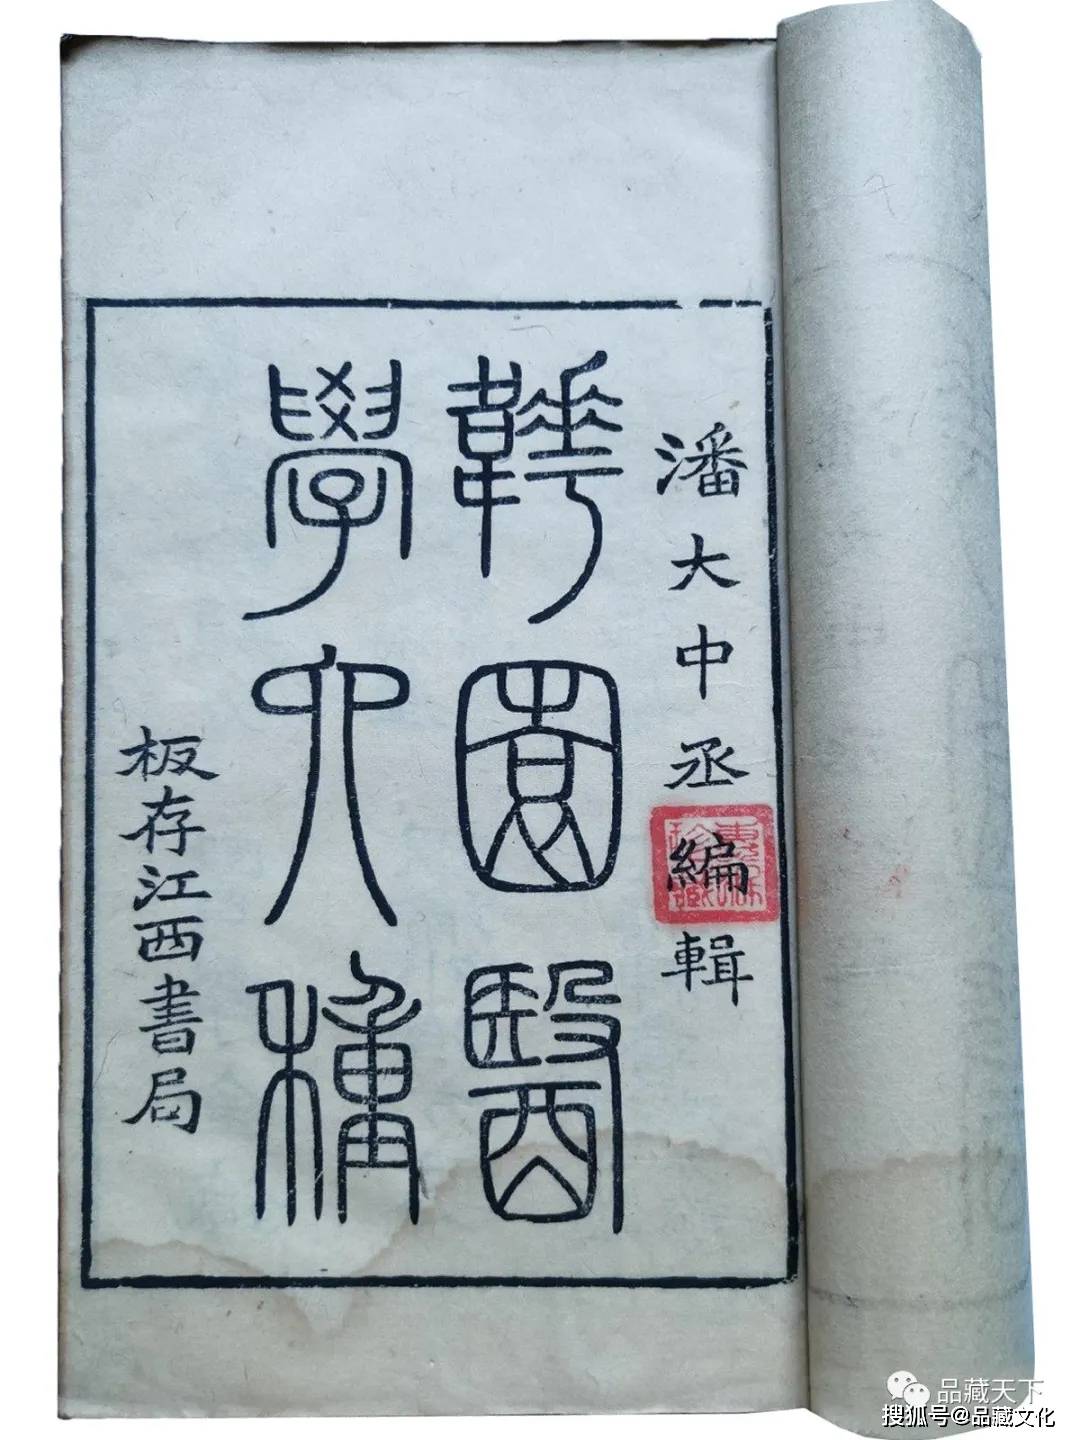 潘大中丞編輯
韡園醫
學六種
板存江西書局
品藏天下
搜狐号@品藏文化